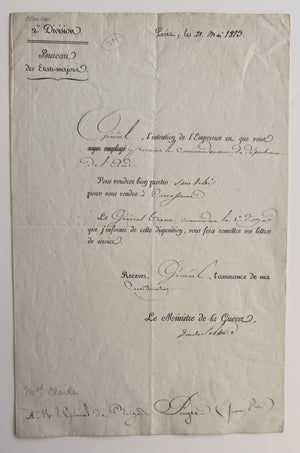 Clarke
2e. Division
Bureau
des Etats-majors
Paris, le 21 Mai 1813.
Général, l'intention de l'Empereur est que vous
preniez le commandement du département
de l'Aude
Vous voudrez bien partir sans délai
pour vous rendre à Carcassonne
Le Général commandant la
que j'informe de cette disposition, vous fera remettre vos lettres
de service.
Recevez, Général, l'assurance de ma
considération
Le Ministre de la Guerre,
Mal Clarke
A M. le Général de Brigade